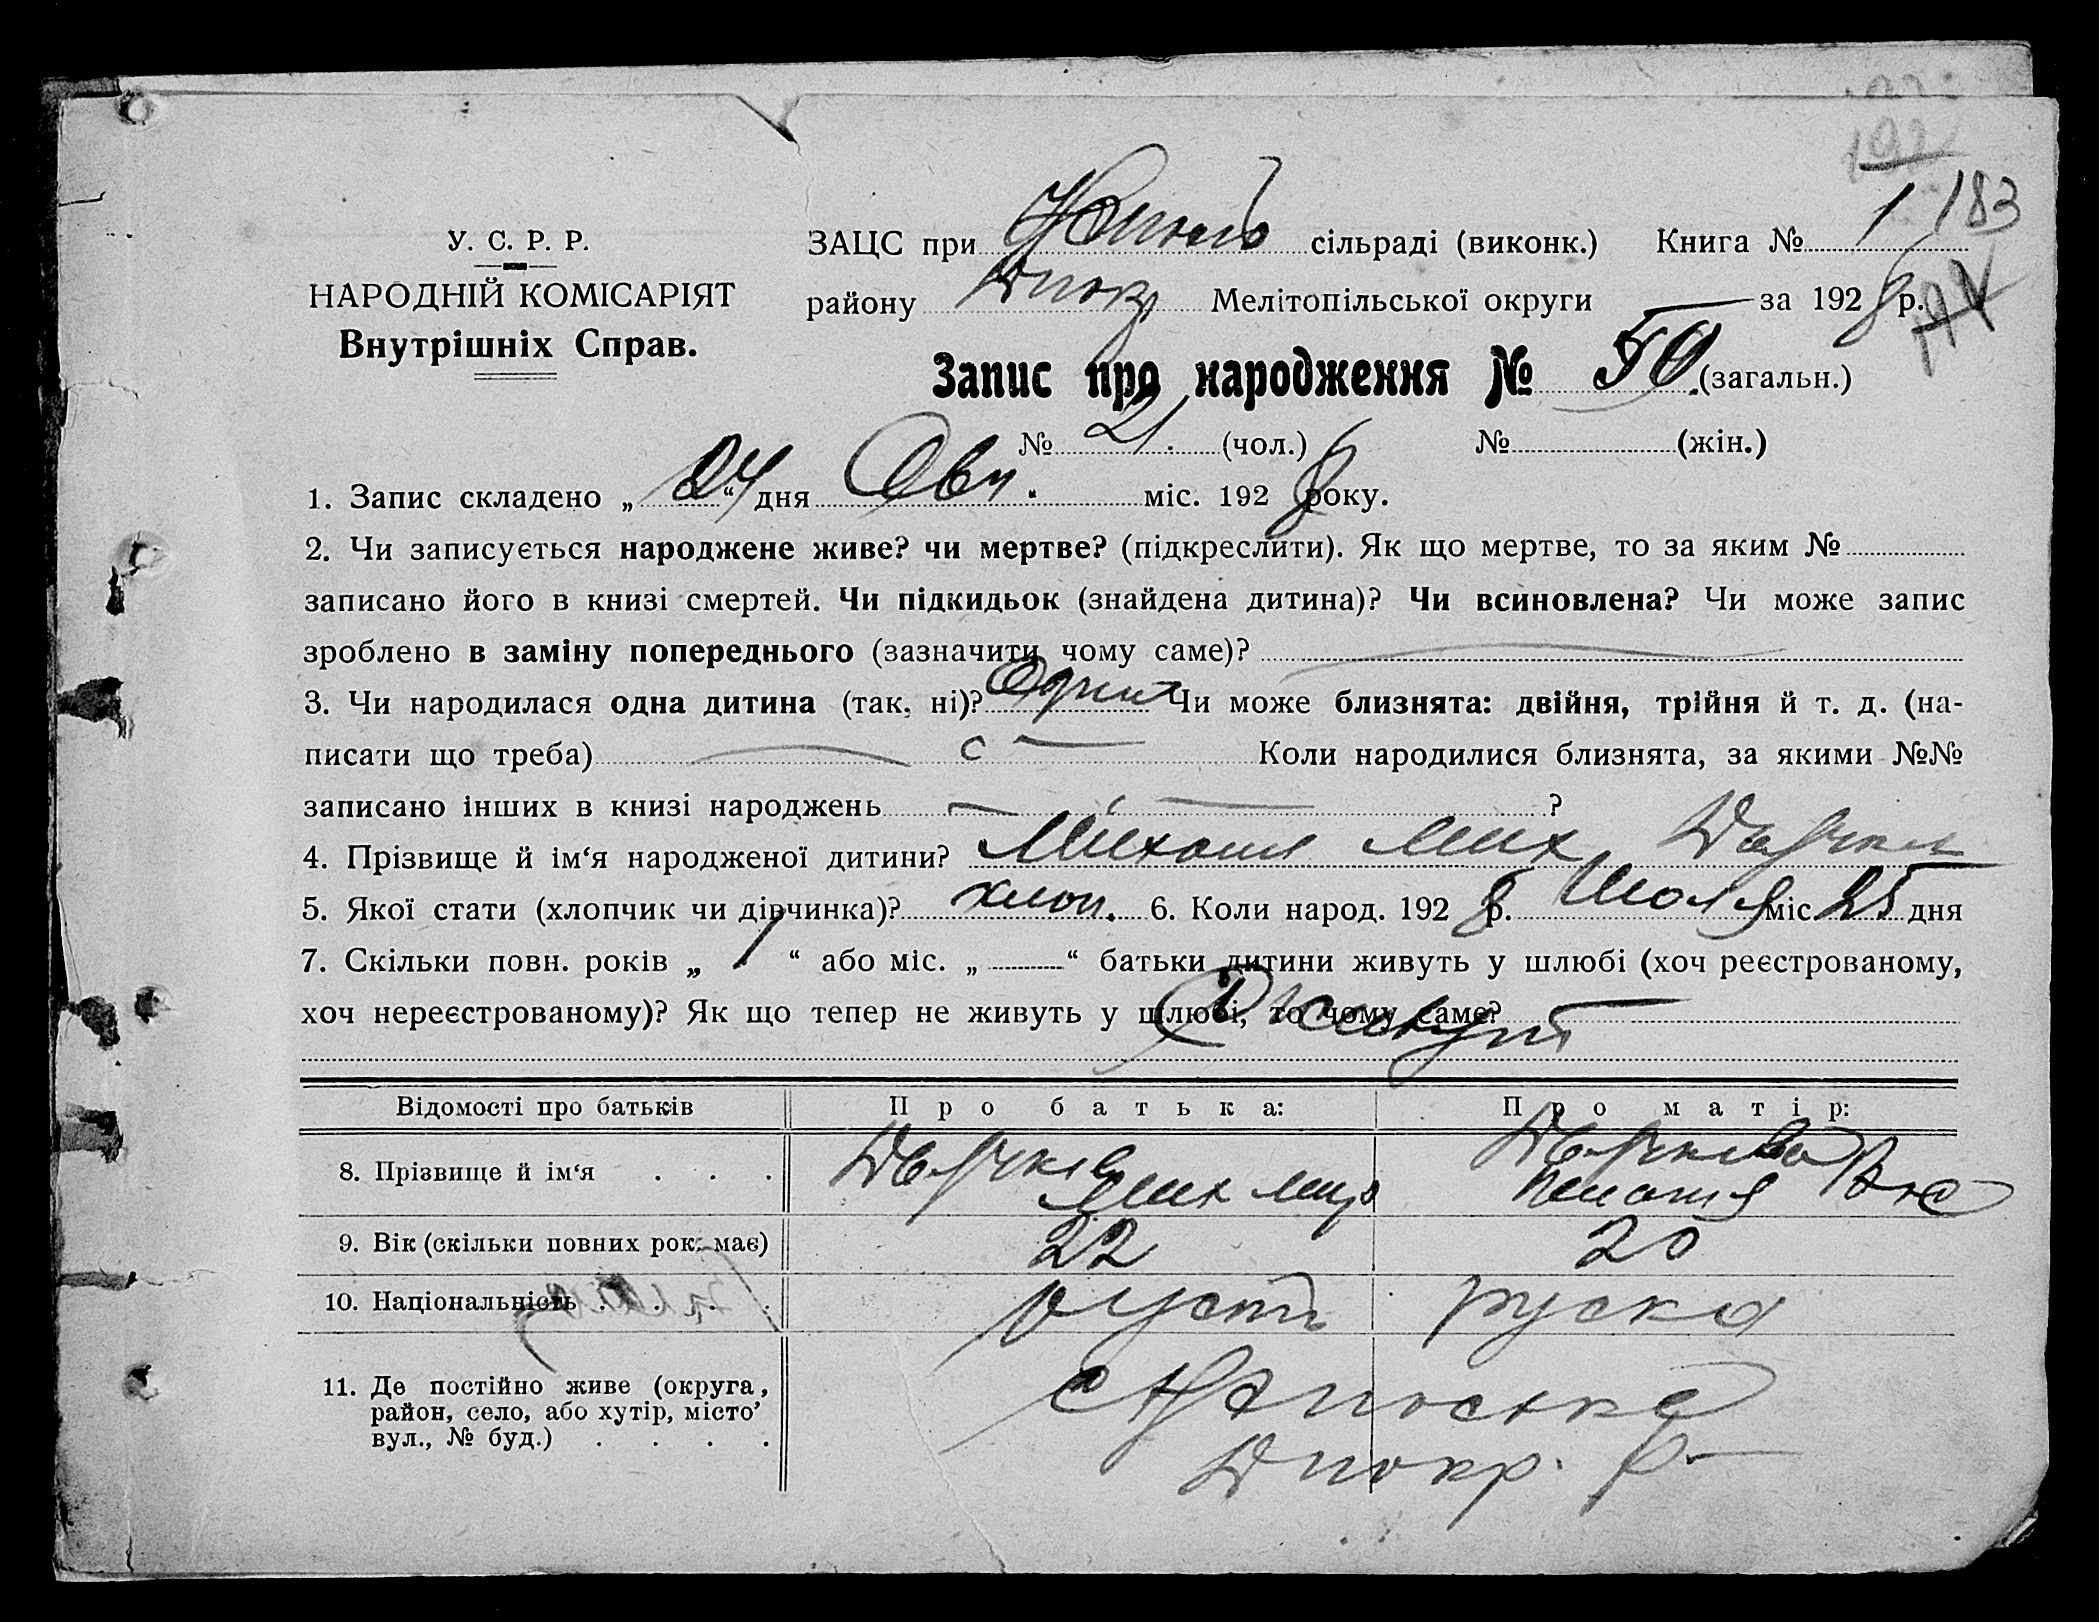 192
183
У. С. Р. Р.
НАРОДНІЙ КОМІСАРІЯТ
Внутрішніх Справ.
ЗАЦС при сільраді (виконк.) Книга № 1
району Днокр Мелітопільської округи за 1928 р.
Запис про народження № 50 (загальн.)
№ 21 (чол.) № (жін.)
1. Запис складено „ 24 “ дня Овг. міс. 1928 року.
2. Чи записується народжене живе? чи мертве? (підкреслити). Як що мертве, то за яким №
записано його в книзі смертей. Чи підкидьок (знайдена дитина)? Чи всиновлена? Чи може запис
зроблено в заміну попереднього (зазначити чому саме)?
3. Чи народилася одна дитина (так, ні)? Один Чи може близнята: двійня, трійня й т. д. (на-
писати що треба) Коли народилися близнята, за якими №№
записано інших в книзі народжень ?
4. Прізвище й ім‘я народженої дитини? Михаил Мих
5. Якої стати (хлопчик чи дівчинка)? хлоп. 6. Коли народ. 1928 р. Июля міс. 25 дня
7. Скільки повн. років „ 1 “ або міс. „ “ батьки дитини живуть у шлюбі (хоч реєстрованому,
хоч нереєстрованому)? Як що тепер не живуть у шлюбі, то чому саме? живут
Відомості про батьків Про батька: Про матір:
8. Прізвище й ім‘я . . . Мих
9. Вік (скільки повних рок. має) 22 20
10. Національність . . . . руска
11. Де постійно живе (округа,
район, село, або хутір, місто’
вул., № буд.) . . . .
Днокр. Р